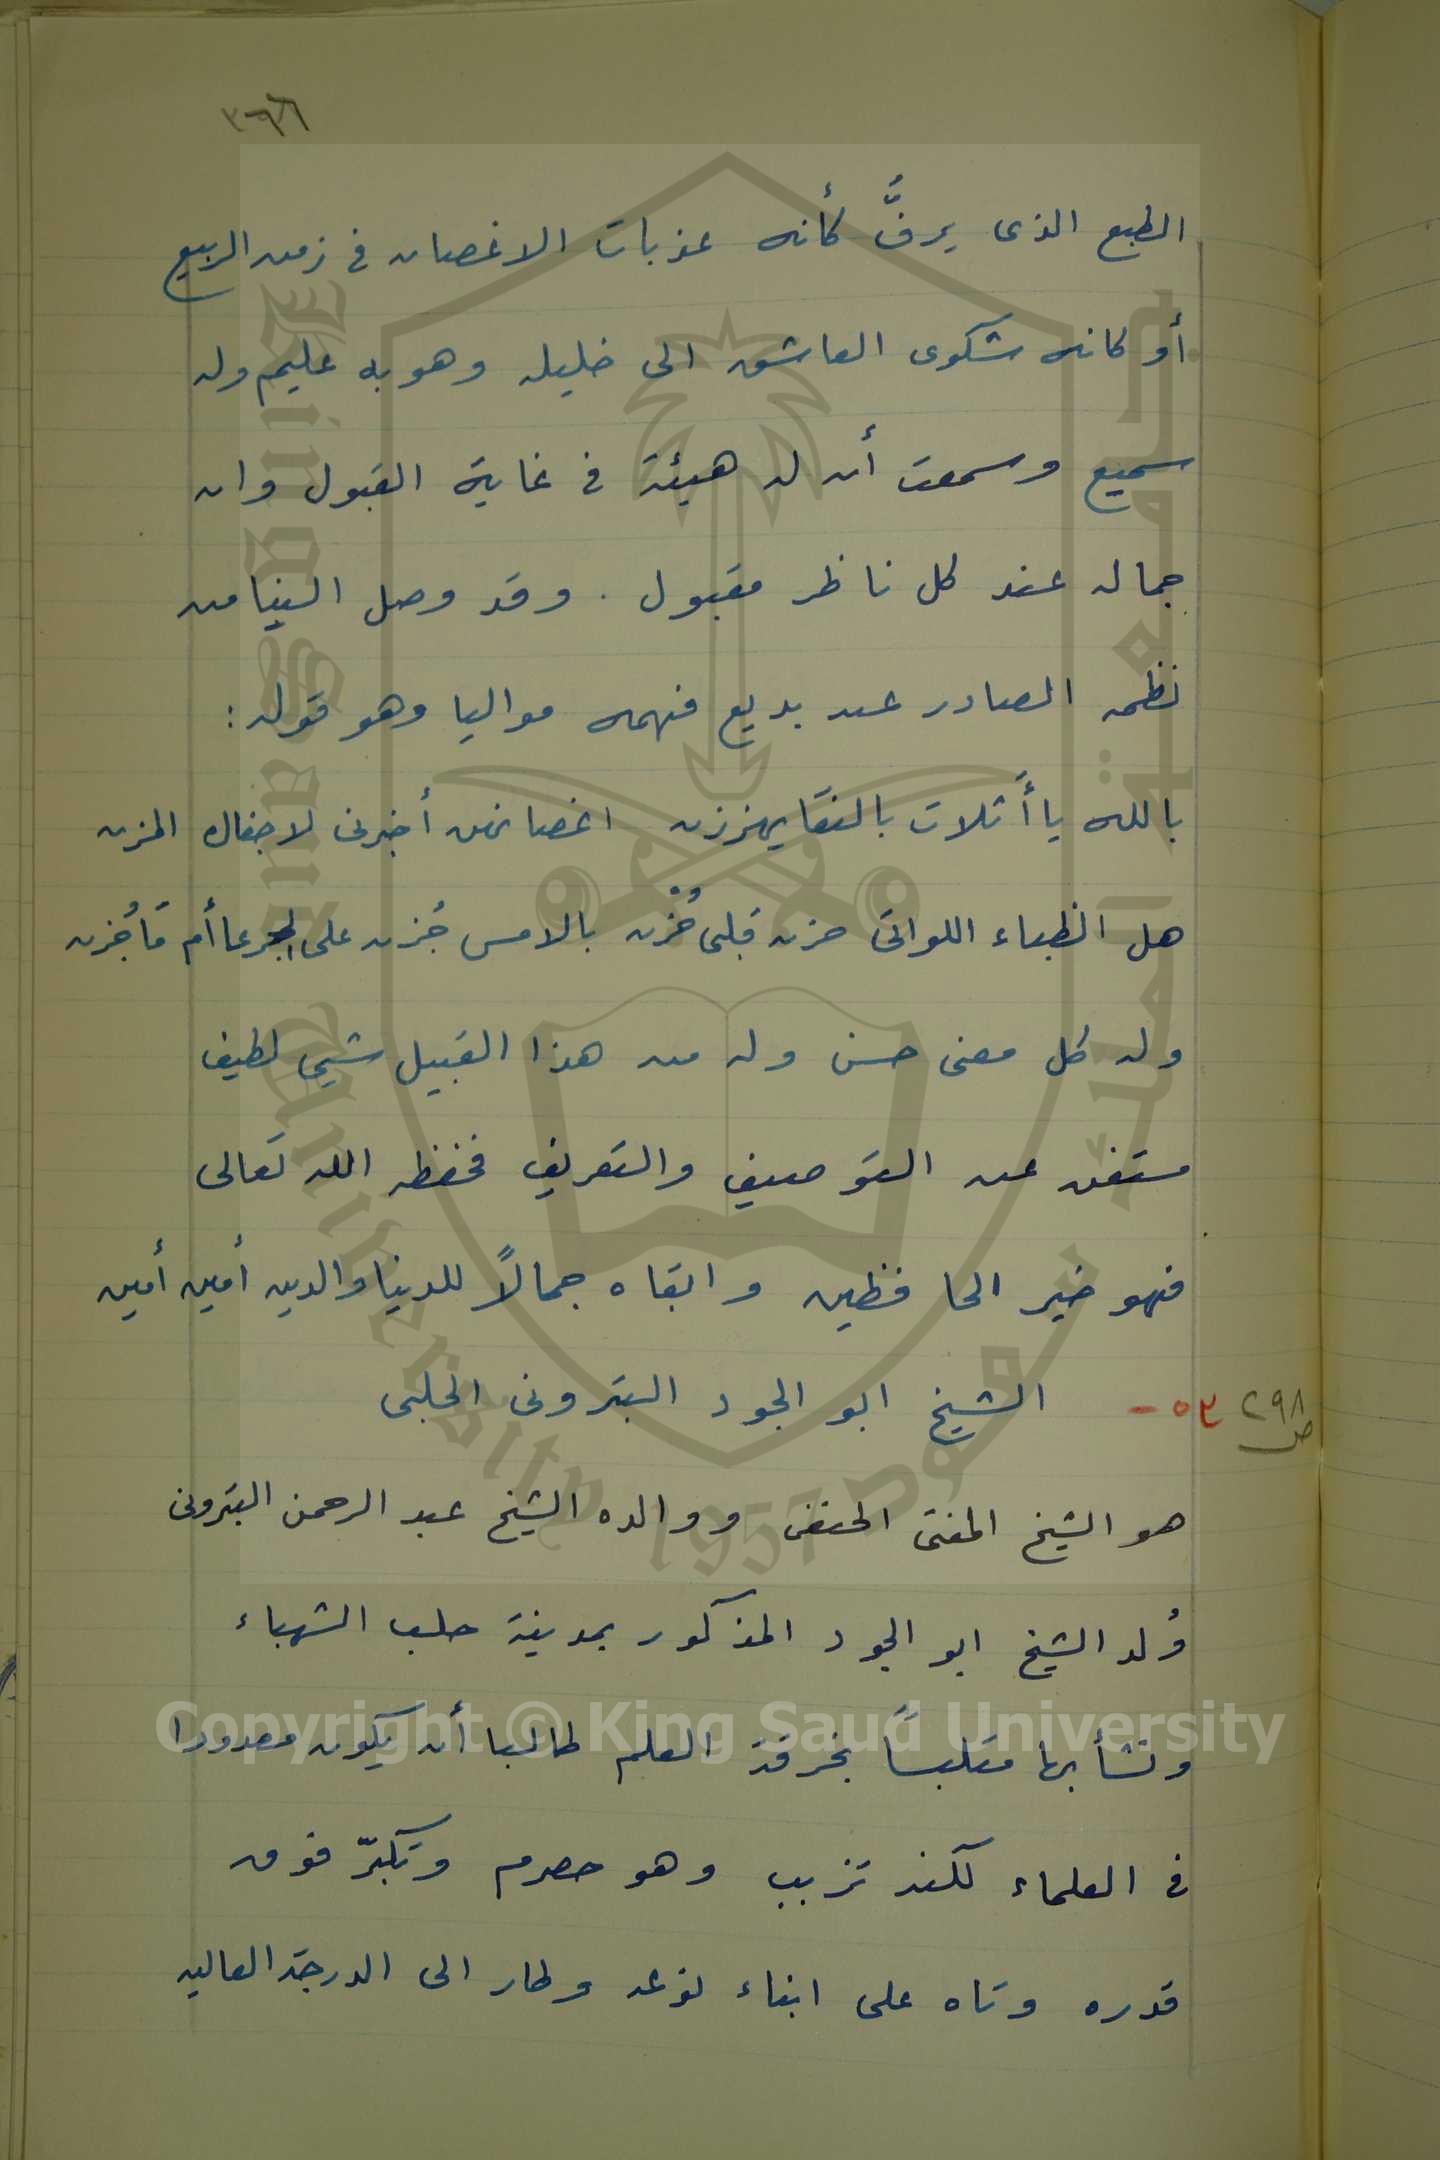 ٣٦٦
الطبع الذى يرفُّ كأنه عذبات الاغصان فى زمن الربيع
أو كانه شكوى العاشق الى خليله وهو به عليم وله
سميع وسمعت أن له هيئة فى غاية القبول وان
جماله عند كل ناظر مقبول . وقد وصل الينا من
نظمه الصادر عن بديع فهمه مواليا وهو قوله :
بالله يا أثلات بالنقا يهززن اغصانهن أخبرنى لاجفال المزن
هل الظباء اللواتى حزن قلبى حُزن بالامس جُزن على الجرعا أم ما جُزن
وله كل معنى حسن وله من هذا القبيل شيى لطيف
مستغن عن التوصيف والتعريف فحفظه الله تعالى
فهو خير الحافظين وابقاه جمالاً للدينا والدين أمين أمين
ص ٢٩٨
٥٣ - الشيخ ابو الجود البترونى الحلبى
هو الشيخ المفتى الحنفى ووالده الشيخ عبد الرحمن البترونى
وُلد الشيخ ابو الجود المذكور بمدينة حلب الشهباء
ونشأ بها متلبساً بخرقة العلم طالبا أن يكون معدودا
فى العلماء لكنه تزبب وهو حصرم وتكبّر فوق
قدره وتاه على ابناء نوعه وطار الى الدرجة العاليه
جامعة الملك سعود
King Saud University
1957
Copyright © King Saud University